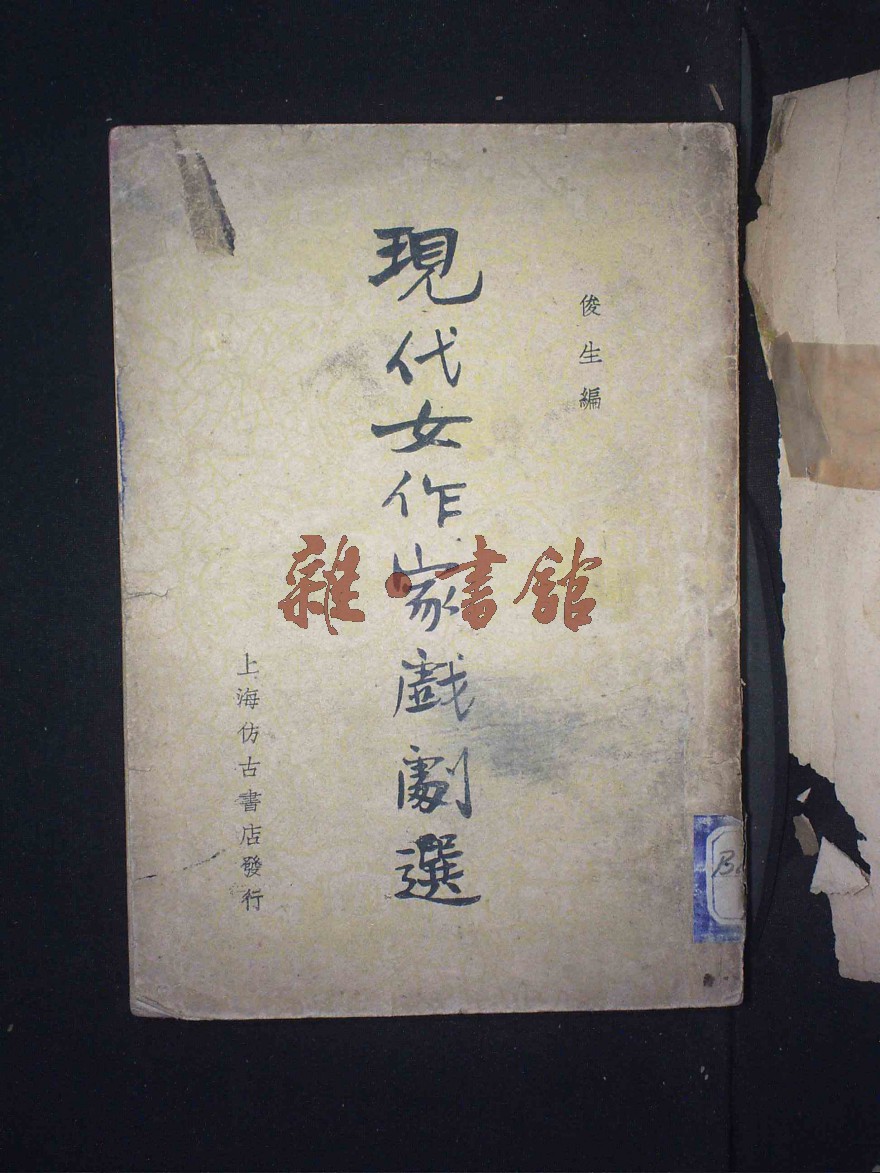 俊生編
現代女作家戲劇選
上海仿古書店發行
雜·書館
B